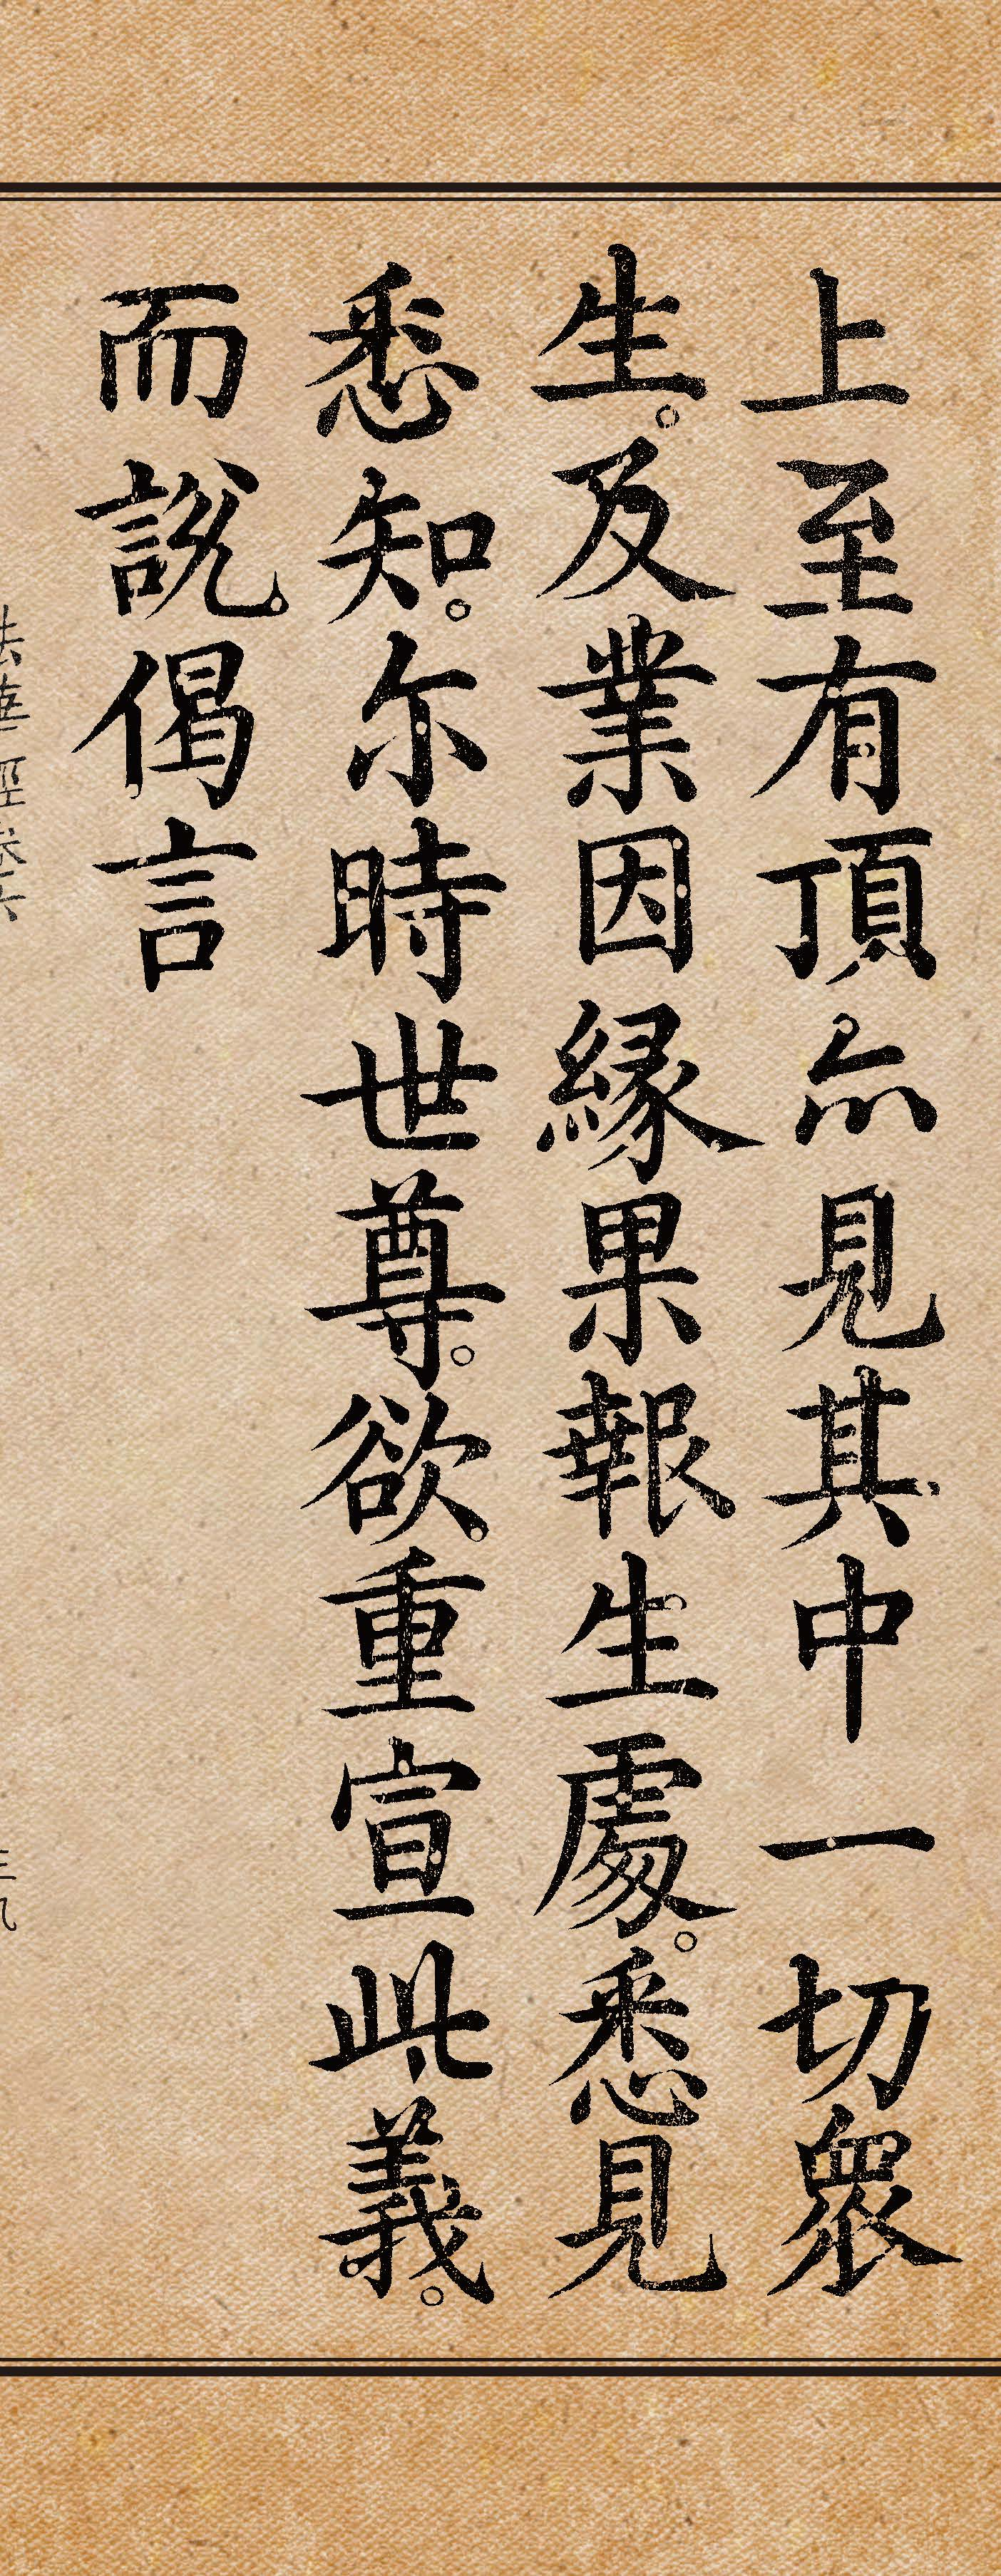 上至有頂亦見其中一切衆
生。及業因緣果報生處。悉見
悉知。尔時世尊。欲重宣此義。
而說偈言
法華經卷六